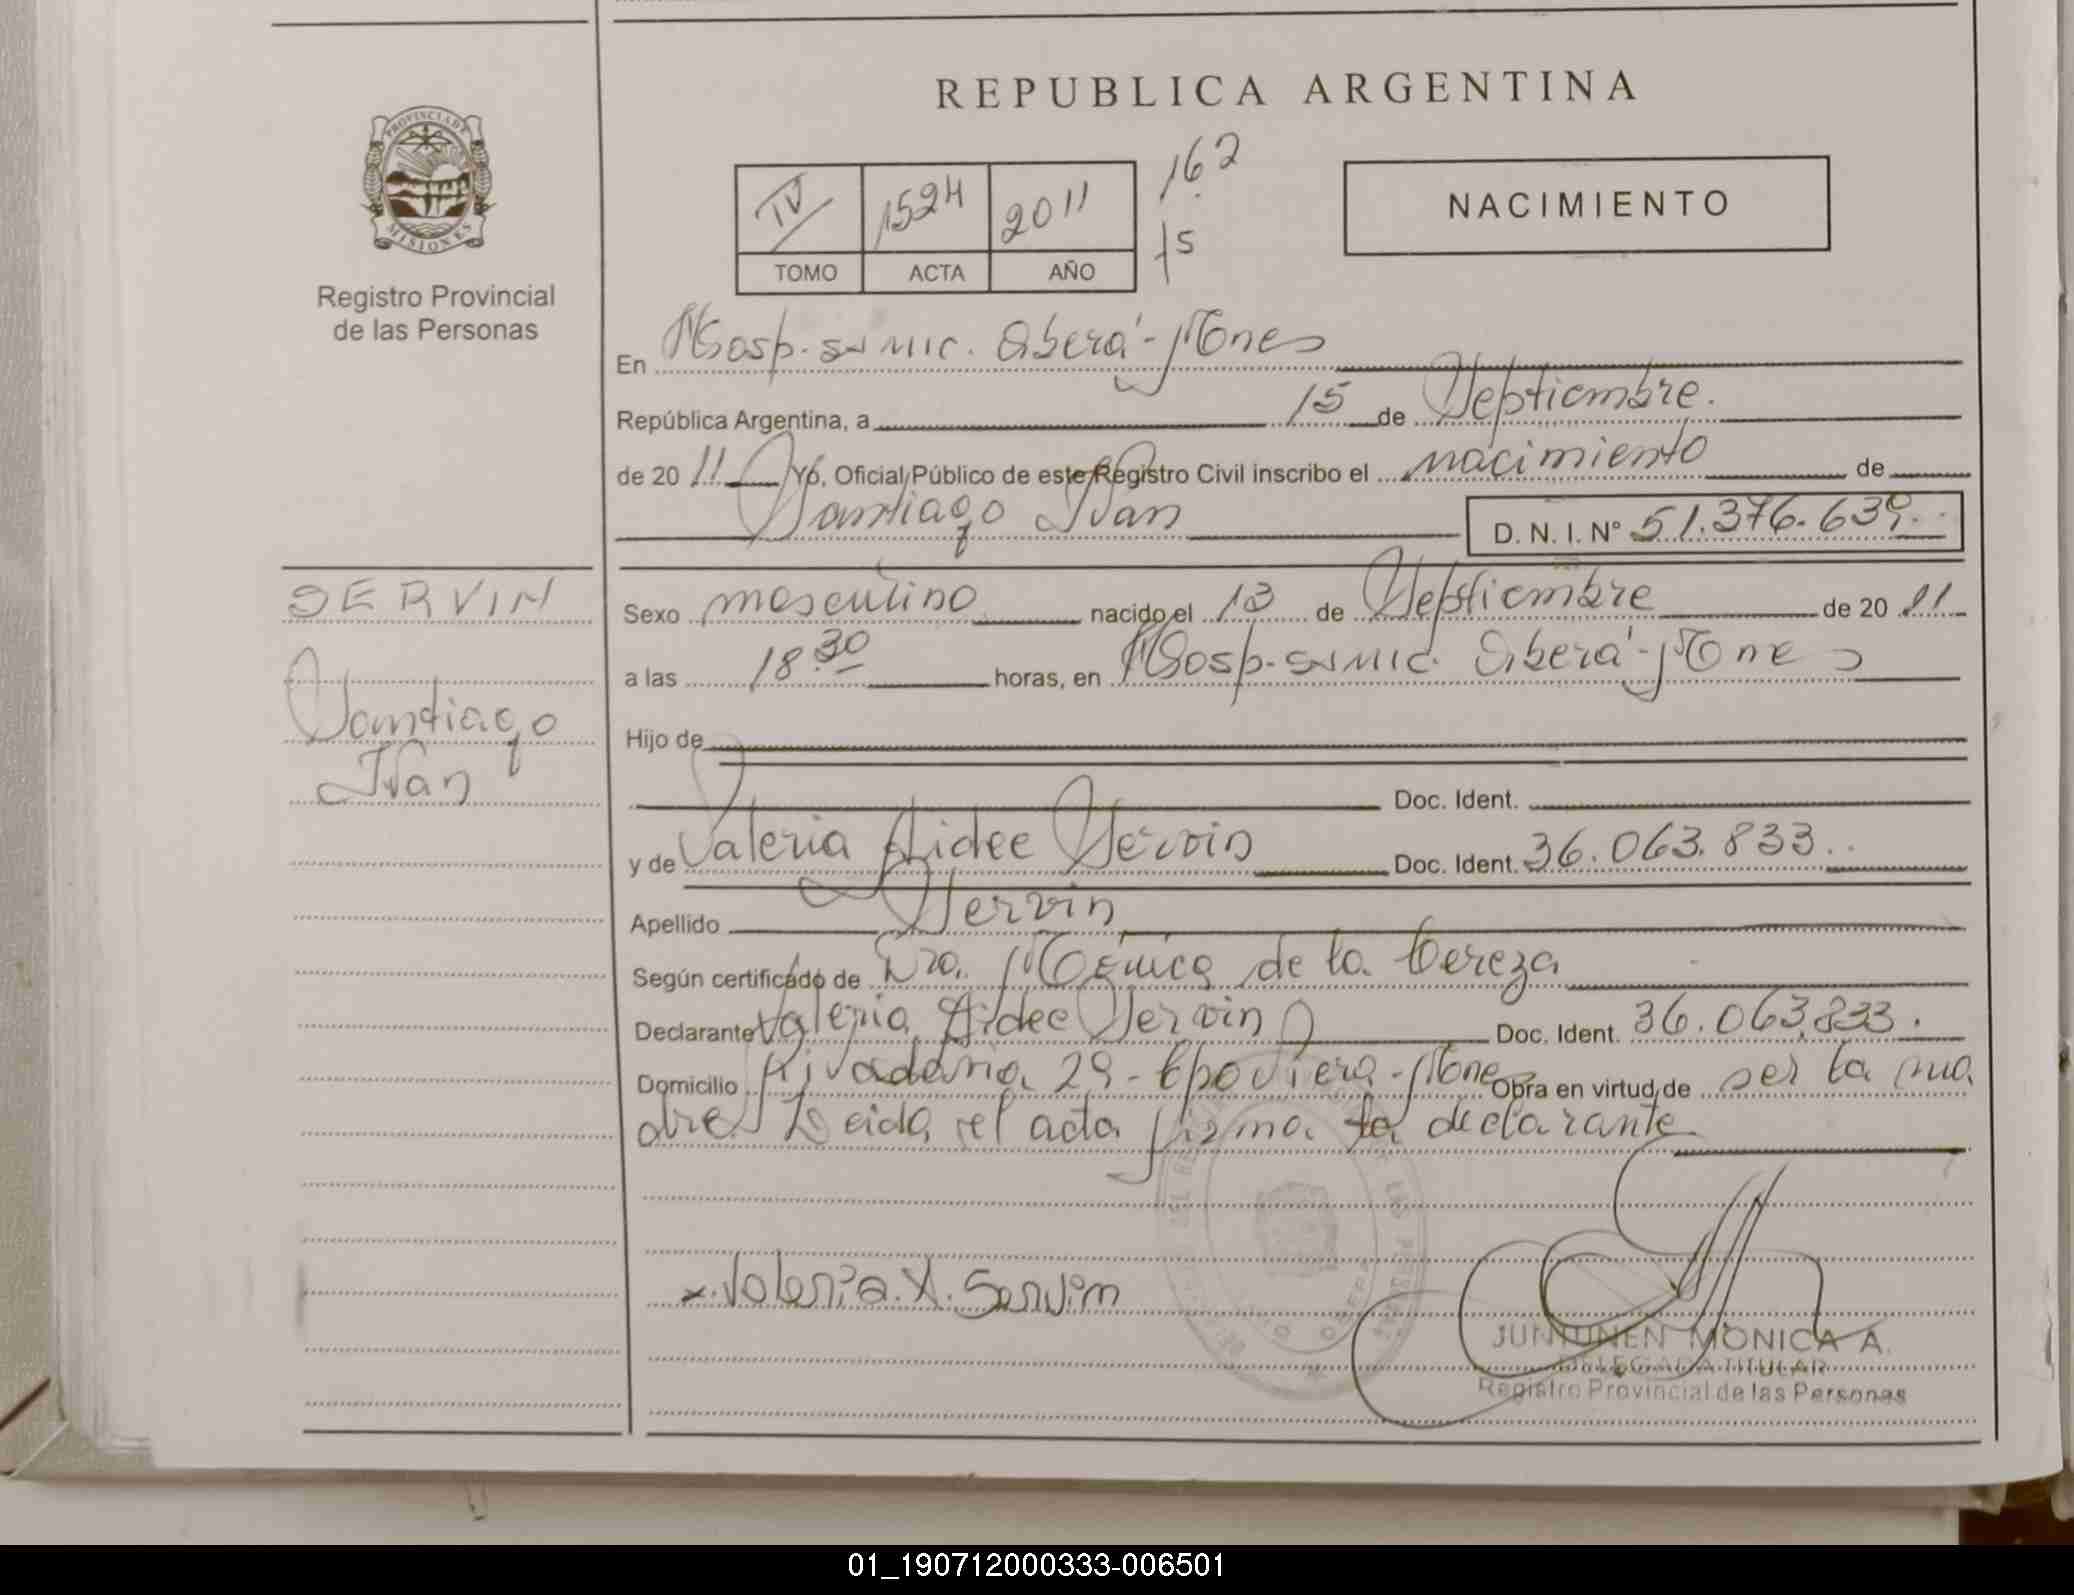 REPUBLICA ARGENTINA
PROVINCIA DE MISIONES
Registro Provincial
de las Personas
IV 1524 2011
TOMO ACTA AÑO
162
f5
NACIMIENTO
En Hosp. SAMIC. Oberá - Mnes
República Argentina, a 15 de Septiembre.
de 20 11 Yo, Oficial Público de este Registro Civil inscribo el nacimiento de
Santiago Ivan D. N. I. Nº 51.376.639.
SERVIN
Santiago
Ivan
Sexo masculino nacido el 13 de Septiembre de 20 11
a las 18.30 horas, en Hosp. SAMIC. Oberá - Mnes
Hijo de
Doc. Ident.
y de Valeria Aidee Servin Doc. Ident. 36.063.833.
Apellido Servin
Según certificado de Dra. Mónica de la
Declarante Valeria Aidee Servin Doc. Ident. 36.063.833.
Domicilio Rivadavia 29 - Cpo Viera - Mnes Obra en virtud de ser la ma
dre. Leida el acta firma la declarante
x. Valeria. A. Servin
JUNTUNEN MONICA A.
DELEGADA TITULAR
Registro Provincial de las Personas
01_190712000333-006501